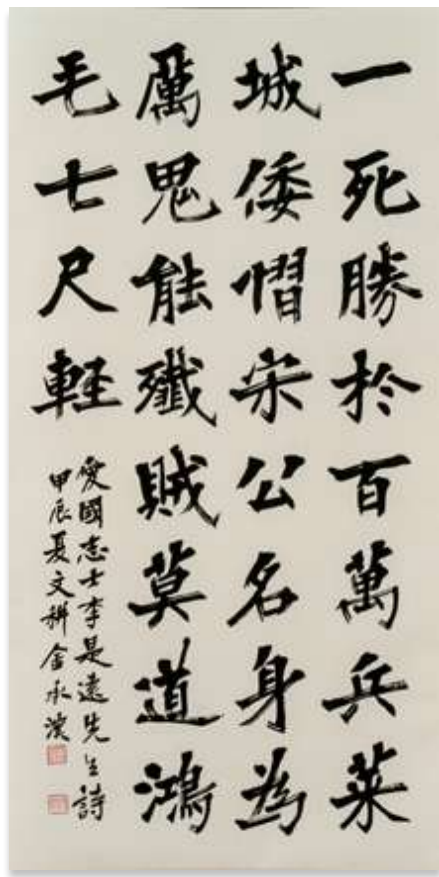 一死勝於百萬兵萊
城倭慴宋公名身為
厲鬼能殲賊莫道鴻
毛七尺輕
愛國志士李是遠先生詩
甲辰夏文科金